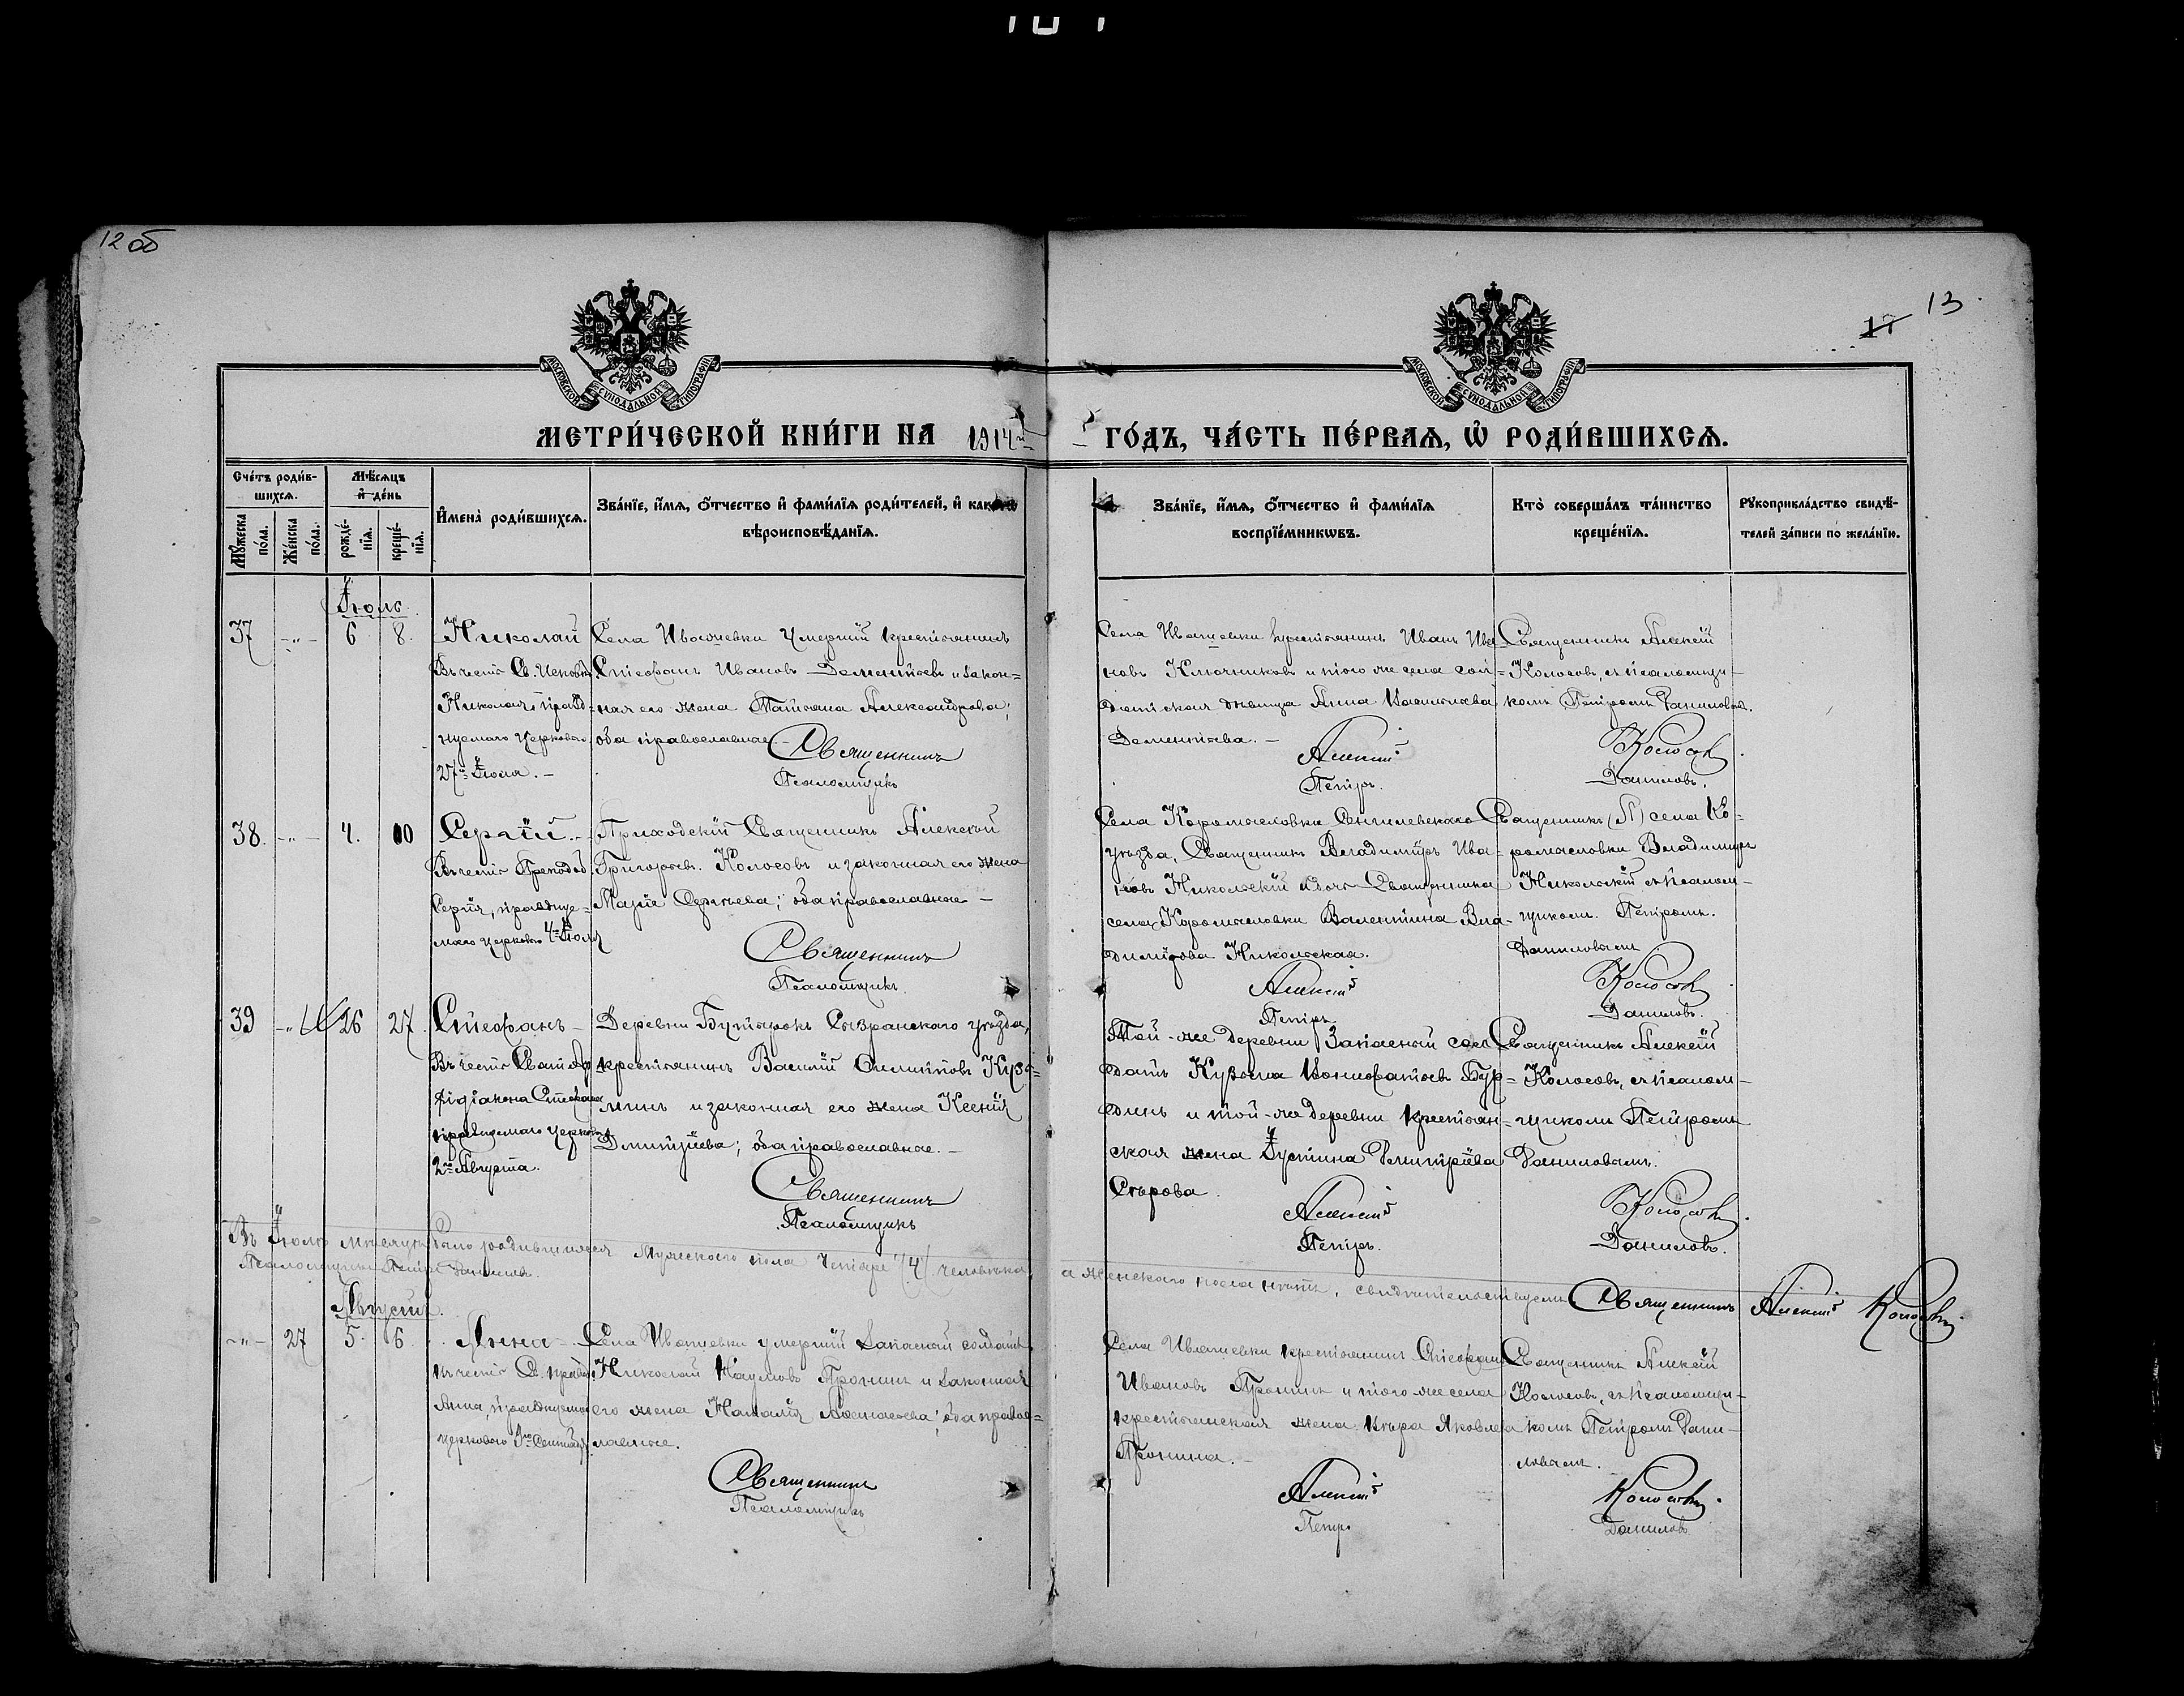 12 об
13
17
МОСКОВСКОЙ СУНОДАЛЬНОЙ ТИПОГРАФІИ
МОСКОВСКОЙ СУНОДАЛЬНОЙ ТИПОГРАФІИ
МЕТРИ́ЧЕСКОЙ КНИ́ГИ НА 1914й ГО́ДЪ, ЧА́СТЬ ПЕ́РВАЯ, Ѡ РОДИ́ВШИХСЯ.
Сче́тъ роди́в-
шихся.
Мѣ́сяцъ
и де́нь
Му́жеска
по́ла.
Же́нска
по́ла.
рожде́-
нія.
креще́-
нія.
Имена̀ роди́вшихся.
Зва́ніе, и́мя, о́тчество и фами́лія роди́телей, и
вѣроисповѣ́данія.
Зва́ніе, и́мя, о́тчество и фами́лія
воспріе́мниковъ.
Кто̀ соверша́лъ та́инство
креще́нія.
Рукоприкла́дство свидѣ́-
телей за́писи по жела́нію.
Іюль.
37 -"- 6 8.
Николай
Въ честь Св.
Николая, празд-
нуемаго Церковію
27го Іюля. -
Села Ивашевки умершій крестьянинъ
Стефанъ Ивановъ Дементьевъ и закон-
ная его жена Татіана Александрова;
оба православные. -
Священникъ
Псаломщикъ
Села Ивашевки крестьянинъ Иванъ Ива-
новъ Ключниковъ и того же села сол-
датская дѣвица Анна Васильева
Дементьева. -
Алексій
Петръ.
Священникъ Алексій
Колосовъ, съ псаломщи-
комъ Петромъ Даниловымъ.
Колосовъ.
Даниловъ.
38. -"- 4. 10
Сергій. -
Въ честь Преподоб.
Сергія, праздну-
емаго Церковію 4го Іюля
Приходскій Священникъ Алексій
Григорьевъ Колосовъ и законная его жена
Марія Сергѣева; оба православные -
Священникъ
Псаломщикъ.
Села Коромысловки Сенгилеевскаго
уѣзда, Священникъ Владиміръ Ива-
новъ Никольскій и дочь Священника
села Коромысловки Валентина Вла-
димірова Никольская.
Алексій
Петръ
Священникъ села Ко-
ромысловки Владиміръ
Никольскій съ псалом-
щикомъ Петромъ
Даниловымъ
Колосовъ.
Даниловъ.
39 -"- 26 27.
Стефанъ -
Въ честь
діакона Стефана
празднуемаго Церковію
2го Августа.
Деревни Бутырокъ Сызранскаго уѣзда,
крестьянинъ Василій Филипповъ Кузь-
минъ и законная его жена Ксенія
Дмитріева; оба православные. -
Священникъ
Псаломщикъ
Той-же деревни Запасный сол-
датъ Кузьма Бур-
динъ и той-же деревни крестьян-
ская жена Іустина Димитріева
Сѣрова.
Алексій
Петръ.
Священникъ Алексій
Колосовъ, съ псалом-
щикомъ Петромъ
Даниловымъ.
Колосовъ.
Даниловъ.
Въ Іюлѣ мѣсяцѣ было родившихся Мужескаго пола четыре /4/ человѣка, а женскаго пола нѣтъ, свидѣтельствуемъ Священникъ Алексій Колосовъ.
Псаломщикъ Петръ Даниловъ.
Августъ.
-"- 27 5. 6.
Анна -
въ честь Св. прав.
Анны, празднуемой
Церковію 9го Сентября
Села Ивашевки умершій Запасный солдатъ
Николай Наумовъ Пронинъ и законная
его жена Наталія ; оба правос-
лавные.
Священникъ
Псаломщикъ
Села Ивашевки крестьянинъ Стефанъ
Ивановъ Пронинъ и того-же села
крестьянская жена Вѣра Яковлева
Пронина. -
Алексій
Петръ
Священникъ Алексій
Колосовъ, съ псаломщи-
комъ Петромъ Дани-
ловымъ.
Колосовъ.
Даниловъ